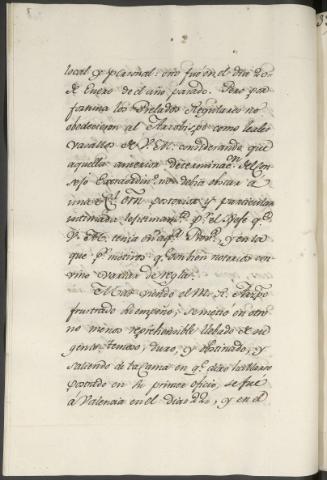 local y personal: esto fué en el dia 20
de Enero de el año pasado. Pero por
fortuna los Prelados Regulares no
obedecieron al Arzobispo como leales
vasallos de V. M. considerando que
aquella anterior determinac.on del Con
sejo Extraordin.o no debia obrar a
una R.l Orn posterior y particular
intimada legitimam.te p.r el Gefe q.e
V. M. tenia en aq.l Reyno, y en la
que p.r motivos q.e son bien notorios con
vino variar de regla.
Mas viendo el M. R. Arzpo
frustrado su empeño, se metió en otro
no menos reprehensible llevado de su
genio tenaz, duro, y obstinado, y
saliendo de la Cama en q.e dixo hallarse
postrado en su primer oficio, se fue
á Valencia en el dia 22, y en el